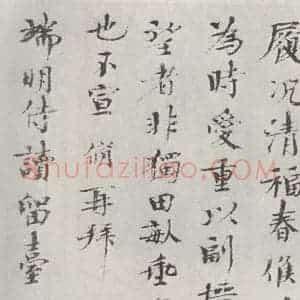 履況清福春候
為時愛重以副
望者非獨田畝
也不宣脩再拜
端明侍讀留臺
Shufazidao.COM